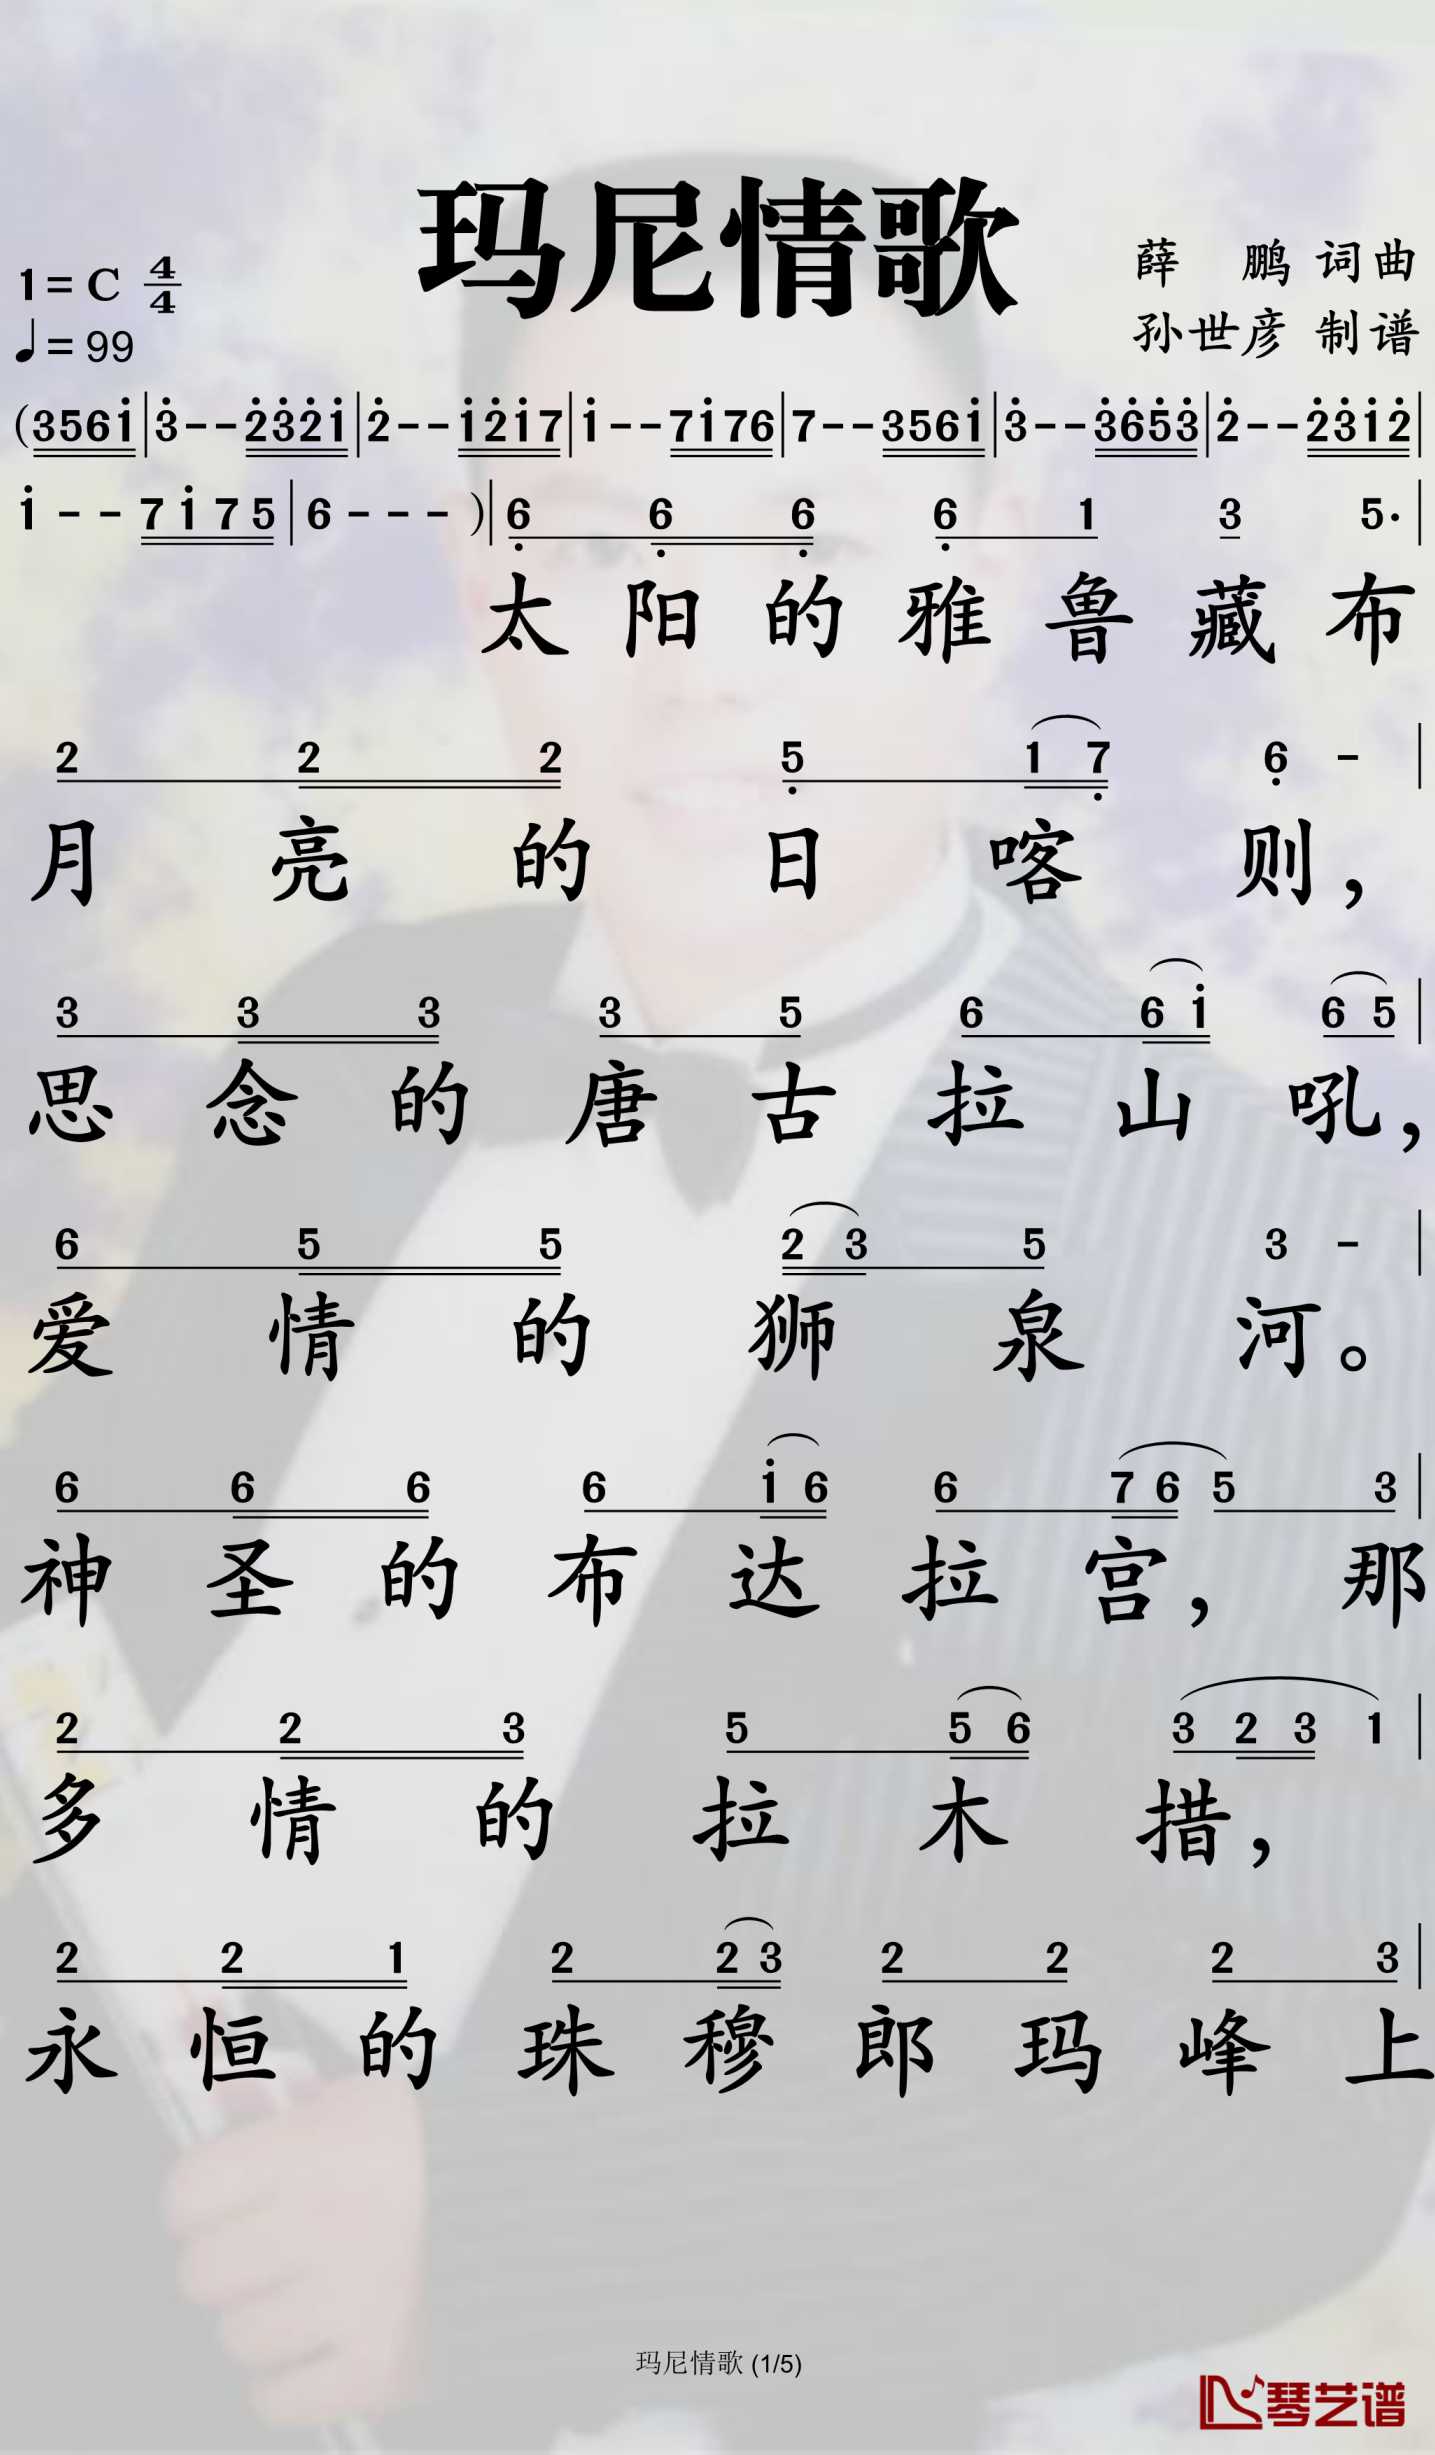 玛尼情歌
1=C 4/4
♩=99
薛 鹏 词曲
孙世彦 制谱
(3561̇|3̇--2̇3̇2̇1̇|2̇--1̇2̇1̇7|1̇--71̇76|7--3561̇|3̇--3̇6̇5̇3̇|2̇--2̇3̇1̇2̇|
1̇--71̇75|6---)|6̣ 6̣ 6̣ 6̣ 1 3 5·|
太阳的雅鲁藏布
2 2 2 5̣ 1 7̣ 6̣ -|
月亮的日喀则，
3 3 3 3 5 6 6 1̇ 6 5|
思念的唐古拉山吼，
6 5 5 2 3 5 3 -|
爱情的狮泉河。
6 6 6 6 1̇ 6 6 7 6 5 3|
神圣的布达拉宫，那
2 2 3 5 5 6 3 2 3 1|
多情的拉木措，
2 2 1 2 2 3 2 2 2 3|
永恒的珠穆郎玛峰上
玛尼情歌 (1/5)
琴艺谱